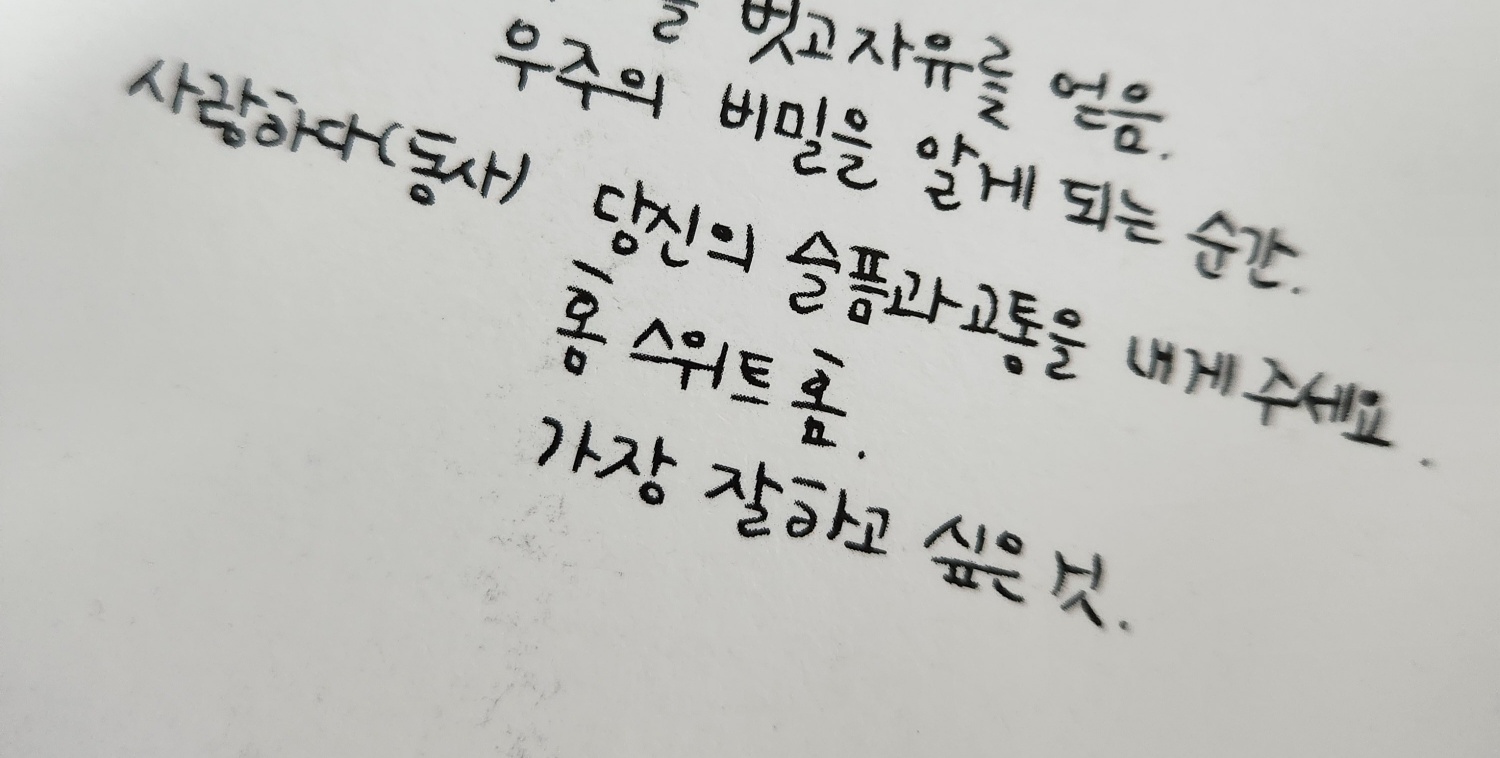 을 벗고 자유를 얻음.
우주의 비밀을 알게 되는 순간.
사랑하다(동사) 당신의 슬픔과 고통을 내게 주세요.
홍 스위트 홈.
가장 잘하고 싶은 것.